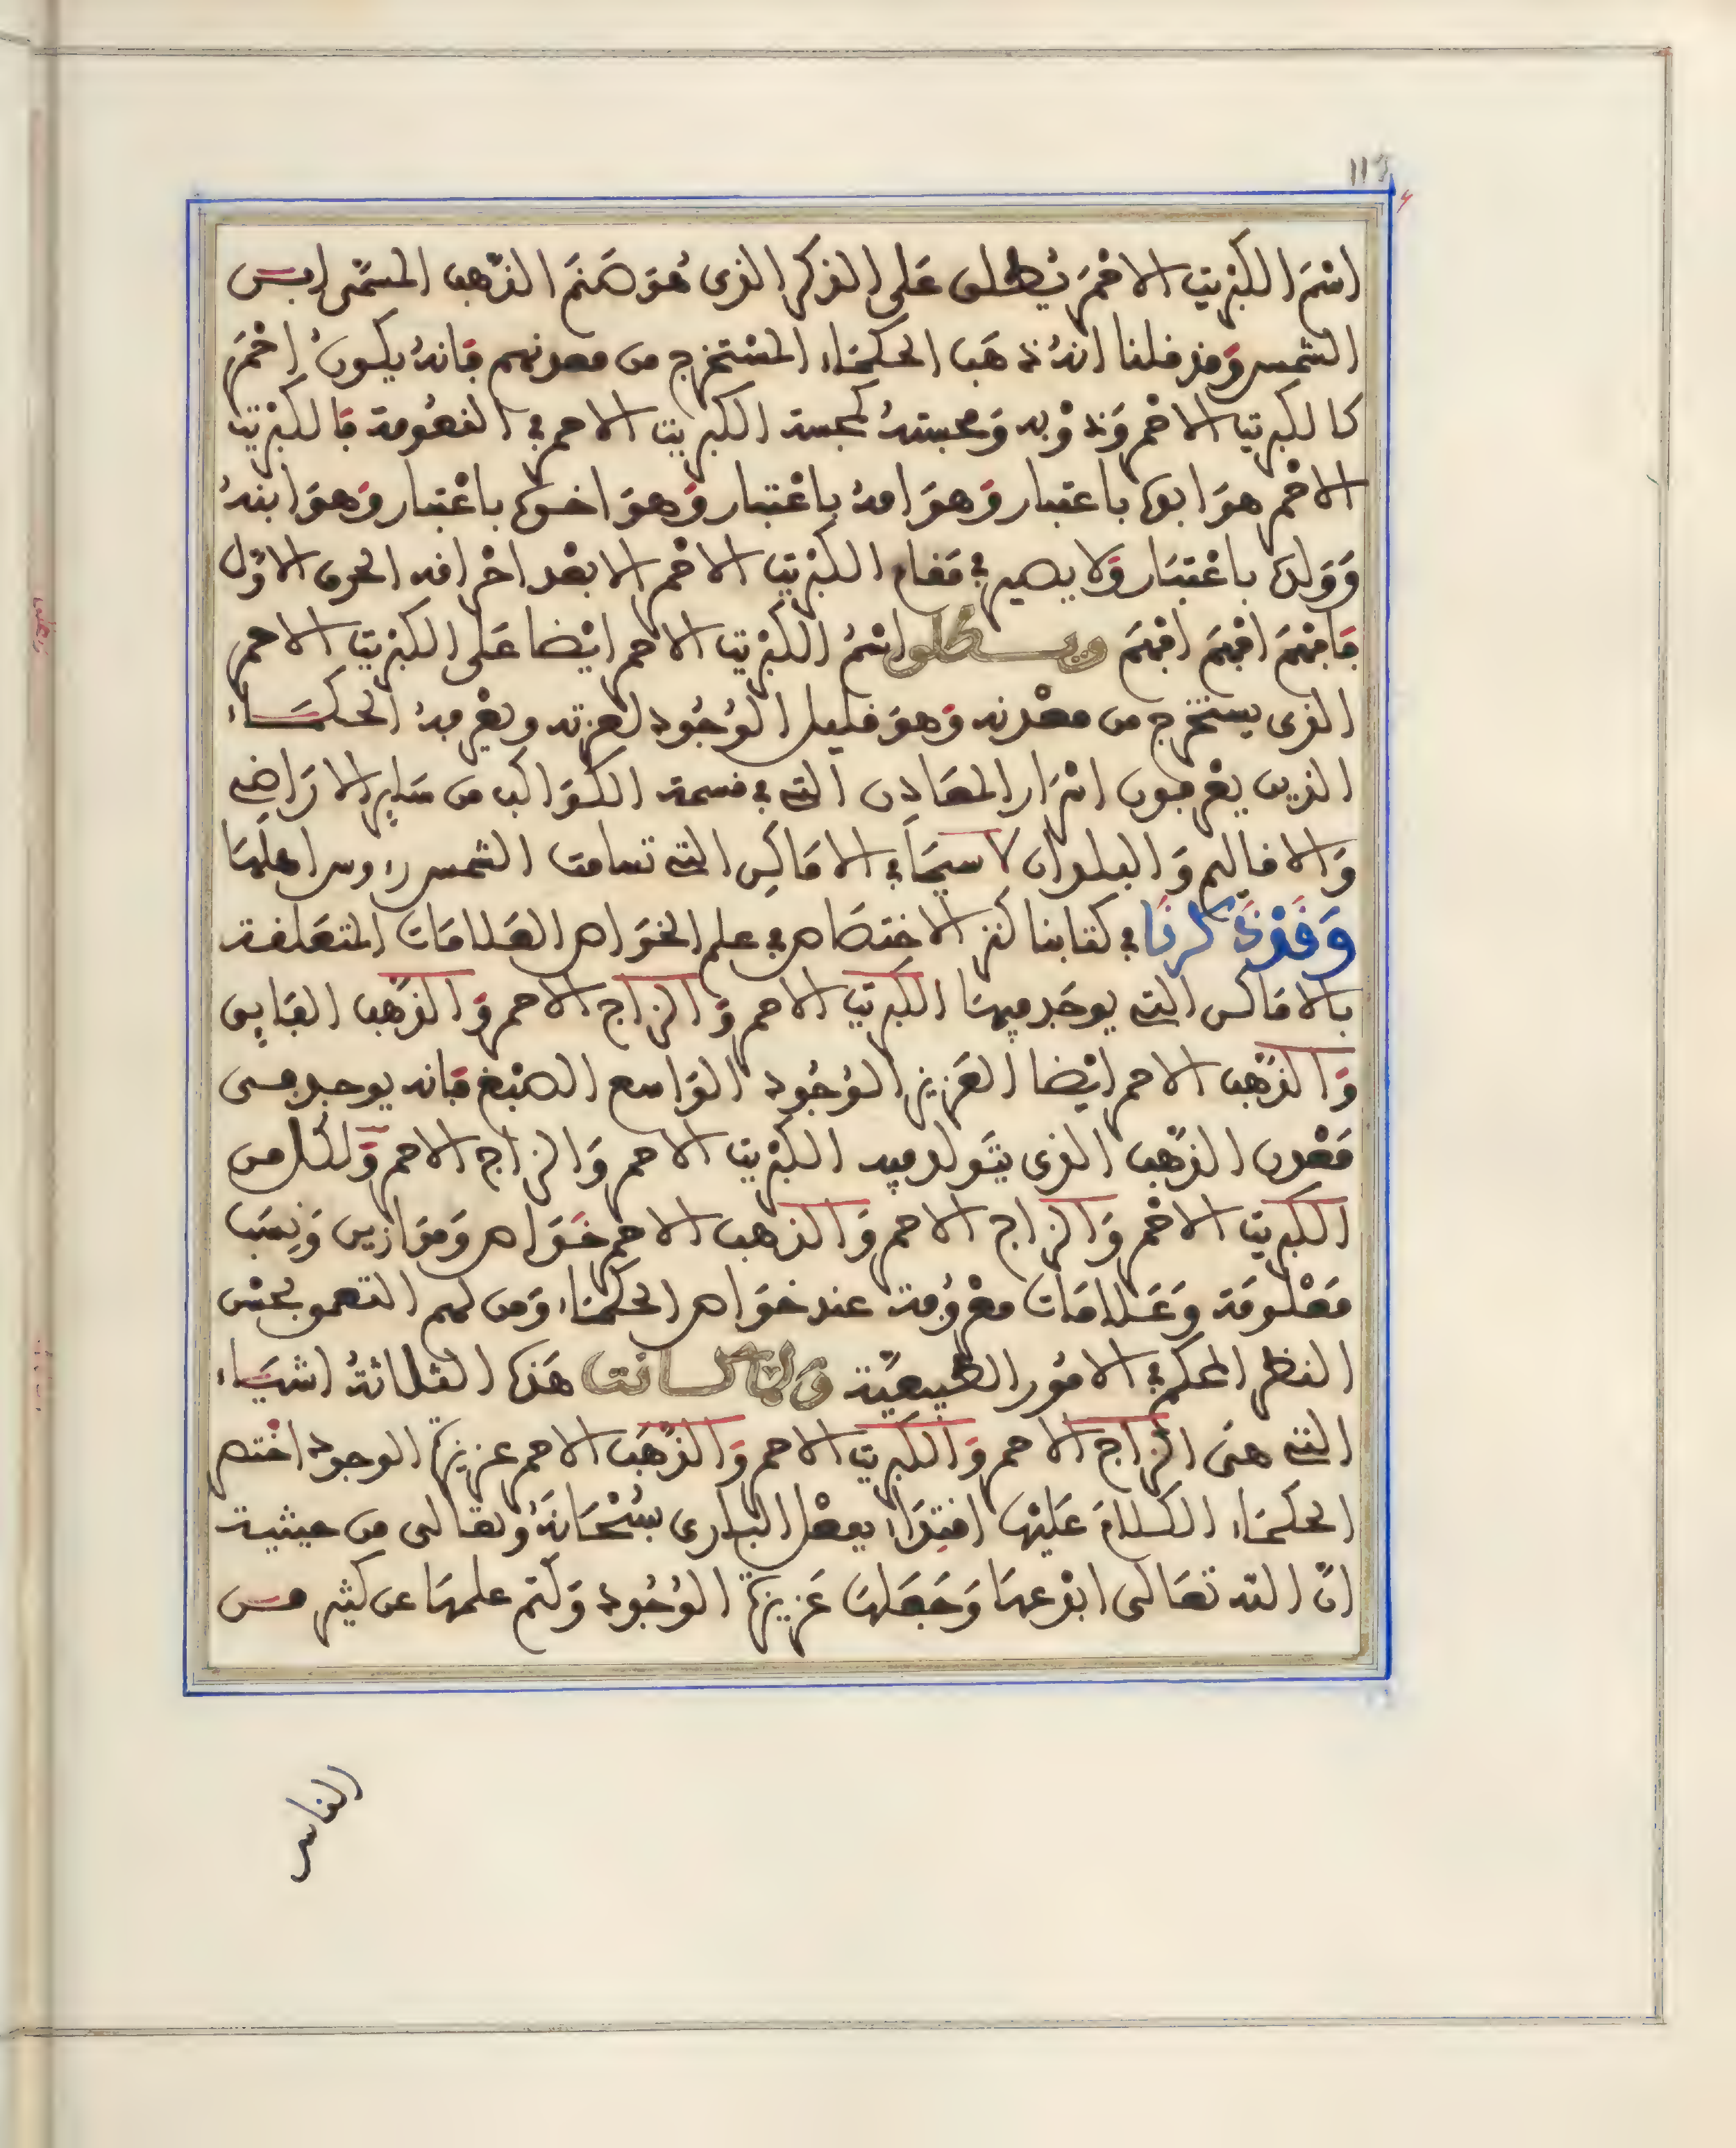 اسْمَ الكبْريت الاحْمَر يُطلق عَلى الذكر الذى هُوَ صَنَم الذّهب المسَمّى ابن
الشمس وَقد قلنا انهُ ذهَب الحكمَاء المسْتخرج من معدنهم فانهُ يكون احْمَر
كالكبريت الاحْمر وَذوْبه وَمجسته كمجسة الكبريت الاحمر فى النعُومة فالكبْريت
الاحْمر هوَ ابوه باعتبار وَهوَ امهُ باعْتبار وَهوَ اخوه باعْتبار وَهوَ ابنهُ
وَوَلده باعْتبَار وَلا يصير فى مَقام الكبْريت الاحْمر الا بعْد احْراقه الحرق الاوّل
فافهَم افهَم افهَم ويطلق اسْمُ الكبْريت الاحمر ايْضا عَلى الكبْريت الاحمر
الذى يستخرج من معْدنه وَهوَ قليل الوُجُود لعزته ويعْرفهُ الحكمَاء
الذين يعْرفون اسْرَار المعَادن التى فى قسمة الكوَاكب من سَايِر الارَاضى
وَالاقاليم وَالبلدان لاسيمَا فى الامَاكِن التى تسامت الشمس رءوس اهلهَا
وَقَدْ ذَكرنَا فى كتابنا كنز الاختصَاص فى علم الخوَاص العَلامَات المتعَلقة
بالامَاكن التى يوجَد فيهَا الكبريت الاحمر وَالزاج الاحمر وَالذهَب الفَايِق
وَالذهَب الاحمر ايْضا العَزيز الوُجُود الوَاسع الصبْغ فانه يوجد فى
مَعْدن الذهَب الذى يتوَلد فيه الكبْريت الاحمر وَالزاج الاحمر وَلكل من
الكبريت الاحْمر وَالزاج الاحمر وَالذهب الاحمر خوَاص وَموَازين وَنِسَب
مَعْلومَة وَعَلامَات معْرُوفة عند خوَاص الحكمَاء وَمن لهم التعمق بحسْن
النظر المحكم فى الامُور الطبيعيّة وَلما كانت هَذه الثلاثةُ اشيَاء
التى هىَ الزاج الاحمر وَالكبريت الاحمر وَالذهَب الاحمر عزيزة الوجود اختص
الحكمَاء الكلامَ عَليْها اقتِدَاء بفعْل البارى سُبْحَانهُ وَتعَالى من حيثية
انّ اللّه تعَالى ابْدعهَا وَجَعَلهَا عَزيزة الوُجُود وَكتم علمهَا عن كثير من
الناس